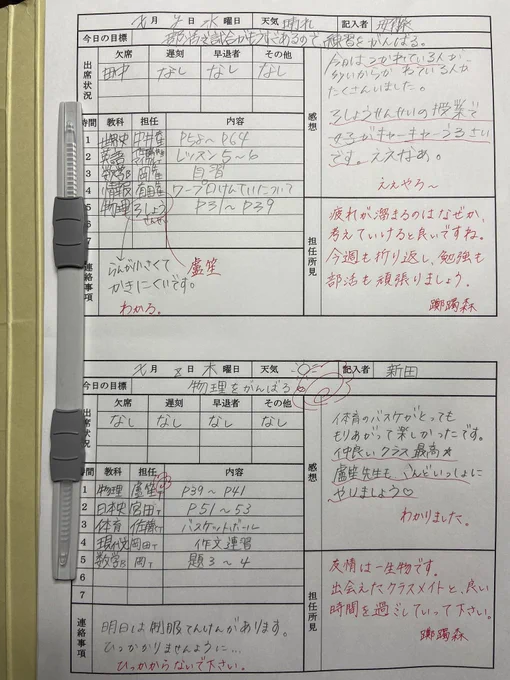 月 水 曜日 天気 晴れ 記入者
今日の目標 部活の試合がもうすぐあるので、練習をがんばる。
出席状況 欠席 遅刻 早退者 その他
田中 なし なし なし
時間 教科 担任 内容
1 P58〜P64
2 英語 レッスン5〜6
3 数学B 岡 自習
4 情報 ワープロけんていについて
5 物理 ろしょうせんせい P31〜P39
6
7
連絡事項
らんが小さくて
かきにくいです。
盧笙
わかる。
感想
今日はつかれている人が
多いからか ねている人が
たくさんいました。
ろしょうせんせいの授業で
女子がキャーキャーうるさい
です。ええなぁ。
ええやろ〜
担任所見
疲れが溜まるのはなぜか、
考えていけると良いですね。
今週も折り返し、勉強も
部活も頑張りましょう。
躑躅森
月 8日 木 曜日 天気 記入者 新田
今日の目標 物理をがんばる
出席状況 欠席 遅刻 早退者 その他
なし なし なし なし
時間 教科 担任 内容
1 物理 盧笙T P39〜P41
2 日本史 宮田T P51〜53
3 体育 佐藤T バスケットボール
4 現代文 岡田T 作文練習
5 数学B 岡T 題3〜4
6
7
連絡事項
明日は制服てんけんがあります。
ひっかかりませんように…
ひっかからないで下さい。
感想
体育のバスケがとっても
もりあがって楽しかったです。
仲良いクラス最高★
盧笙先生も こんどいっしょに
やりましょう♡
わかりました。
担任所見
友情は一生物です。
出会えたクラスメイトと、良い
時間を過ごしていって下さい。
躑躅森